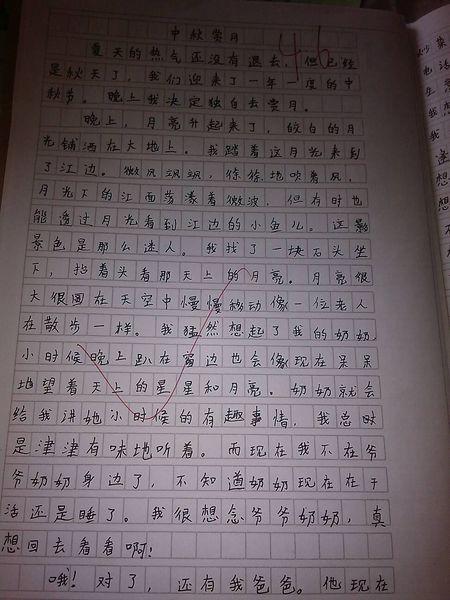 中秋赏月
46
夏天的热气还没有退去，但已经
是秋天了，我们迎来了一年一度的中
秋节。晚上我决定独自去赏月。
晚上，月亮升起来了，皎白的月
光铺洒在大地上。我踏着这月光来到
了江边。微风飒飒，徐徐地吹着风，
月光下的江面荡漾着微波，但有时也
能透过月光看到江边的小鱼儿。这影
景色是那么迷人。我找了一块石头坐
下，抬着头看那天上的月亮。月亮很
大很圆在天空中慢慢移动像一位老人
在散步一样。我猛然想起了我的奶奶
小时候晚上趴在窗边也会像现在呆呆
地望着天上的星星和月亮。奶奶就会
给我讲她小时候的有趣事情，我总时
是津津有味地听着。而现在我不在爷
爷奶奶身边了，不知道奶奶现在在干
活还是睡了。我很想念爷爷奶奶，真
想回去看看啊！
哦！对了，还有我爸爸。他现在
炒菜
电话
生
我
想
想